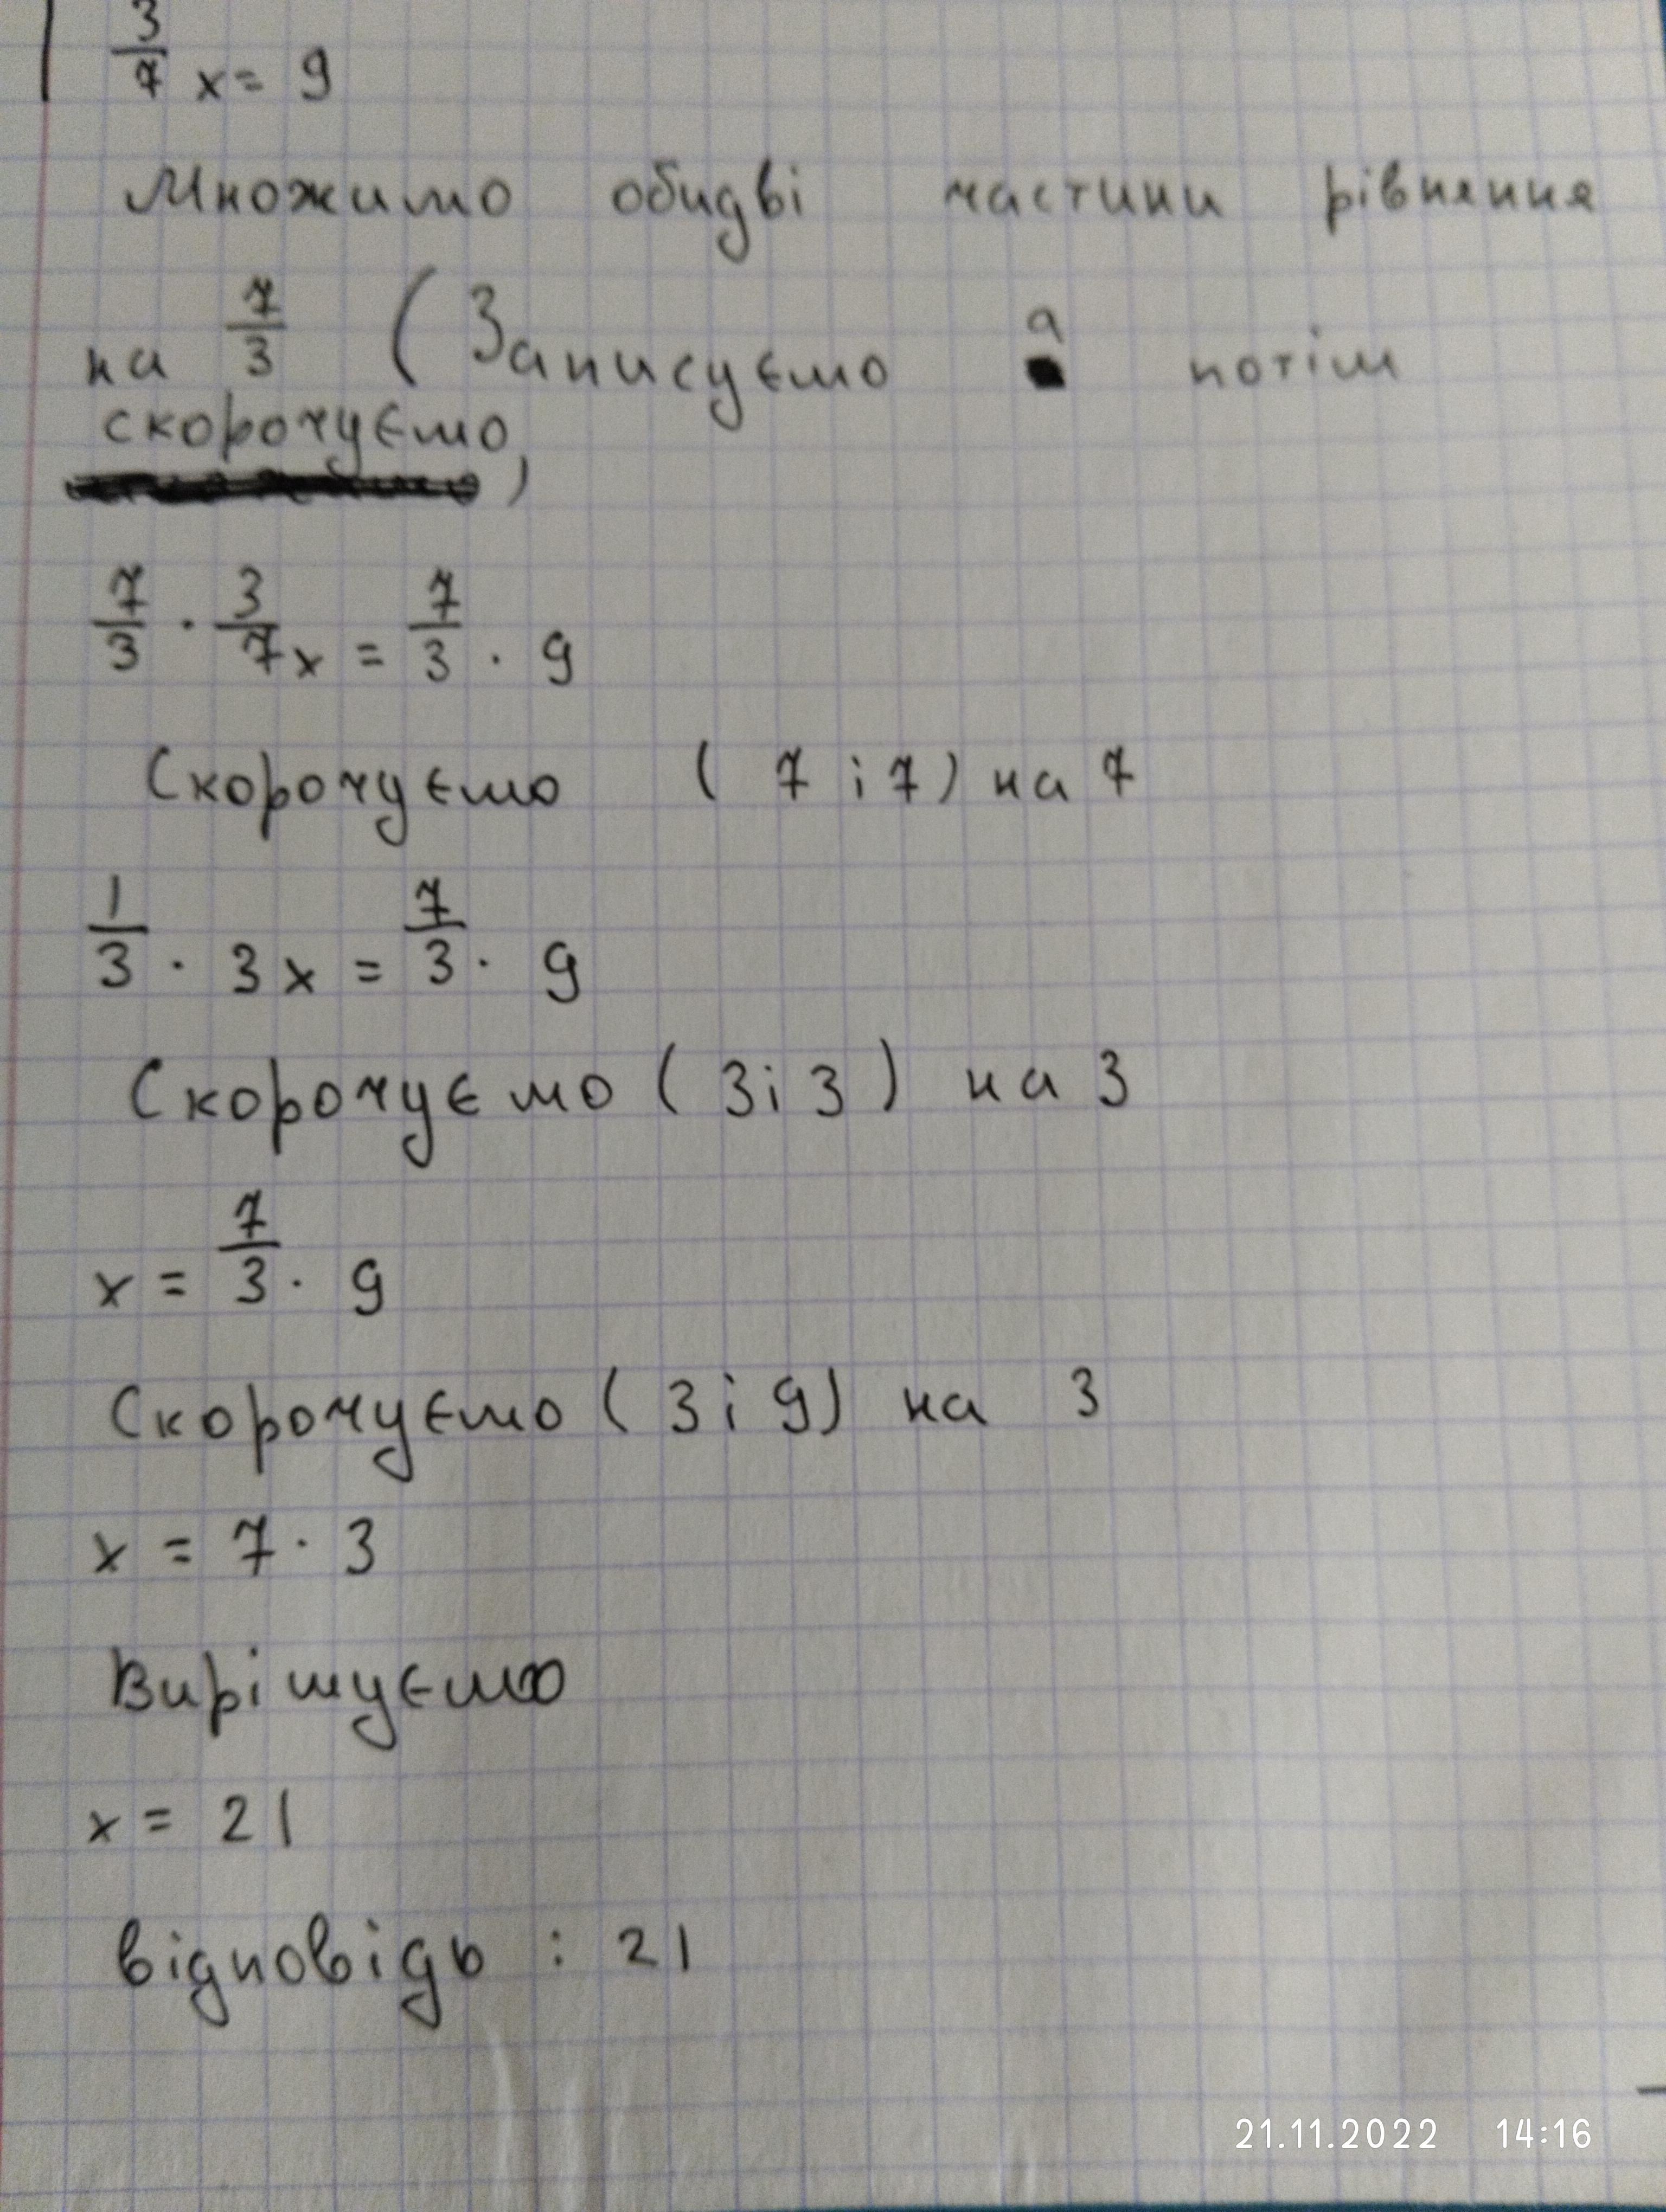 3/7 x = 9
Множимо обидві частини рівняння
на 7/3 (Записуємо а потім
скорочуємо)
7/3 · 3/7 x = 7/3 · 9
Скорочуємо (7 і 7) на 7
1/3 · 3x = 7/3 · 9
Скорочуємо (3 і 3) на 3
x = 7/3 · 9
Скорочуємо (3 і 9) на 3
x = 7 · 3
Вирішуємо
x = 21
відповідь : 21
21.11.2022 14:16